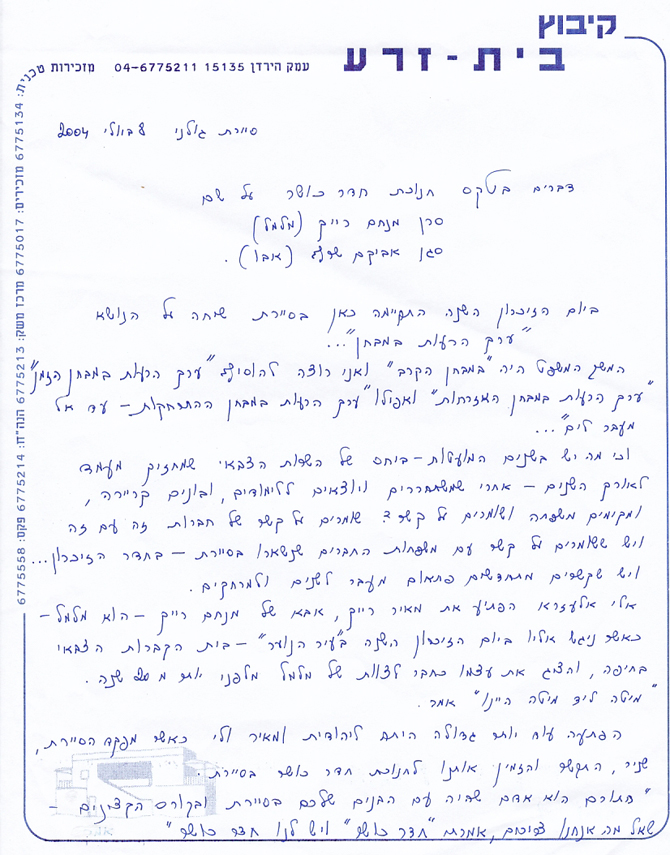 קיבוץ
בית-זרע
עמק הירדן 15135 04-6775211 מזכירות
טכנית: 6775134 מזכירים: 6775017 מרכז משק: 6775213 הנה"ח: 6775214 פקס: 6775558
סיירת גולני 8 ביולי 2004
דברים בטקס חנוכת חדר כושר על שם
סרן מנחם רייק (מלמל)
סגן אביקם שרף (אבו).
ביום הזיכרון השנה התקיימה כאן בסיירת שיחה על הנושא
"ערך הרעות במבחן"...
המשך המשפט היה "במבחן הקרב" ואני רוצה להוסיף "ערך הרעות במבחן הזמן"
"ערך הרעות במבחן האזרחות" ואפילו "ערך הרעות במבחן ההתרחקות – עד אל
מעבר לים"...
וכי מה יש בשנים המועטות – ביחס של השרות הצבאי שמחזיק מעמד
לאורך השנים – אחרי שמשתחררים ויוצאים ללימודים, ובונים קריירה,
ומקימים משפחה ושומרים על קשר? שומרים על קשר של חברות זה עם זה
ויש ששומרים על קשר עם משפחות החברים שנשארו בסיירת – בחדר הזיכרון...
ויש שקשרים מתחדשים פתאום מעבר לשנים ולמרחקים.
אלי אלעזרא הפתיע את מאיר רייק, אבא של מנחם רייק – הוא מלמל –
כאשר ניגש אליו ביום הזיכרון השנה ב"עיר הנוער" – בית הקברות הצבאי
בחיפה, והציג את עצמו כחבר לצוות של מלמל מלפני יותר מ 20 שנה.
"מיטה ליד מיטה היינו" אמר.
הפתעה עוד יותר גדולה היתה ליהודית ומאיר ולי כאשר מפקד הסיירת,
שניר, התקשר והזמין אותנו לחנוכת חדר כושר בסיירת.
"התורם הוא אדם שהיה עם הבנים שלכם בסיירת ובקורס הקצינים –
שאל מה אנחנו צריכים, אמרתי "חדר כושר" ויש לנו חדר כושר"